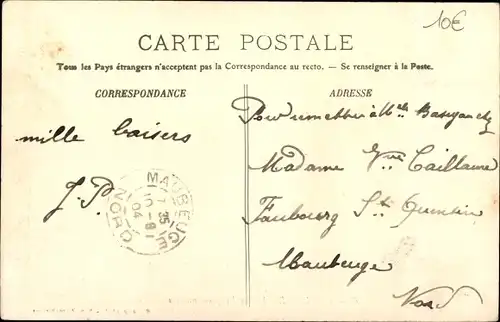 10€
CARTE POSTALE
Tous les Pays étrangers n'acceptent pas la Correspondance au recto. — Se renseigner à la Poste.
CORRESPONDANCE
ADRESSE
mille baisers
J. P.
MAUBEUGE
7 35
10-8
04
NORD
Pour remettre à Mlle
Madame Vve Caillaume
Faubourg St Quentin
Maubeuge
Nord